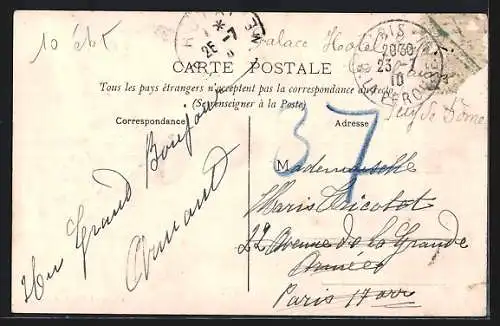 10 ct
25 -7
Palace Hotel
PARIS
20 30
23 - 7
10
CARTE POSTALE
Tous les pays étrangers n'acceptent pas la correspondance au recto
(Se renseigner à la Poste)
Puy de Dôme
Correspondance
Adresse
37
Un Grand Bonjour
Armant
Mademoiselle
Maris Tricotot
22 Avenue de la Grande
Armée
Paris 17 arr